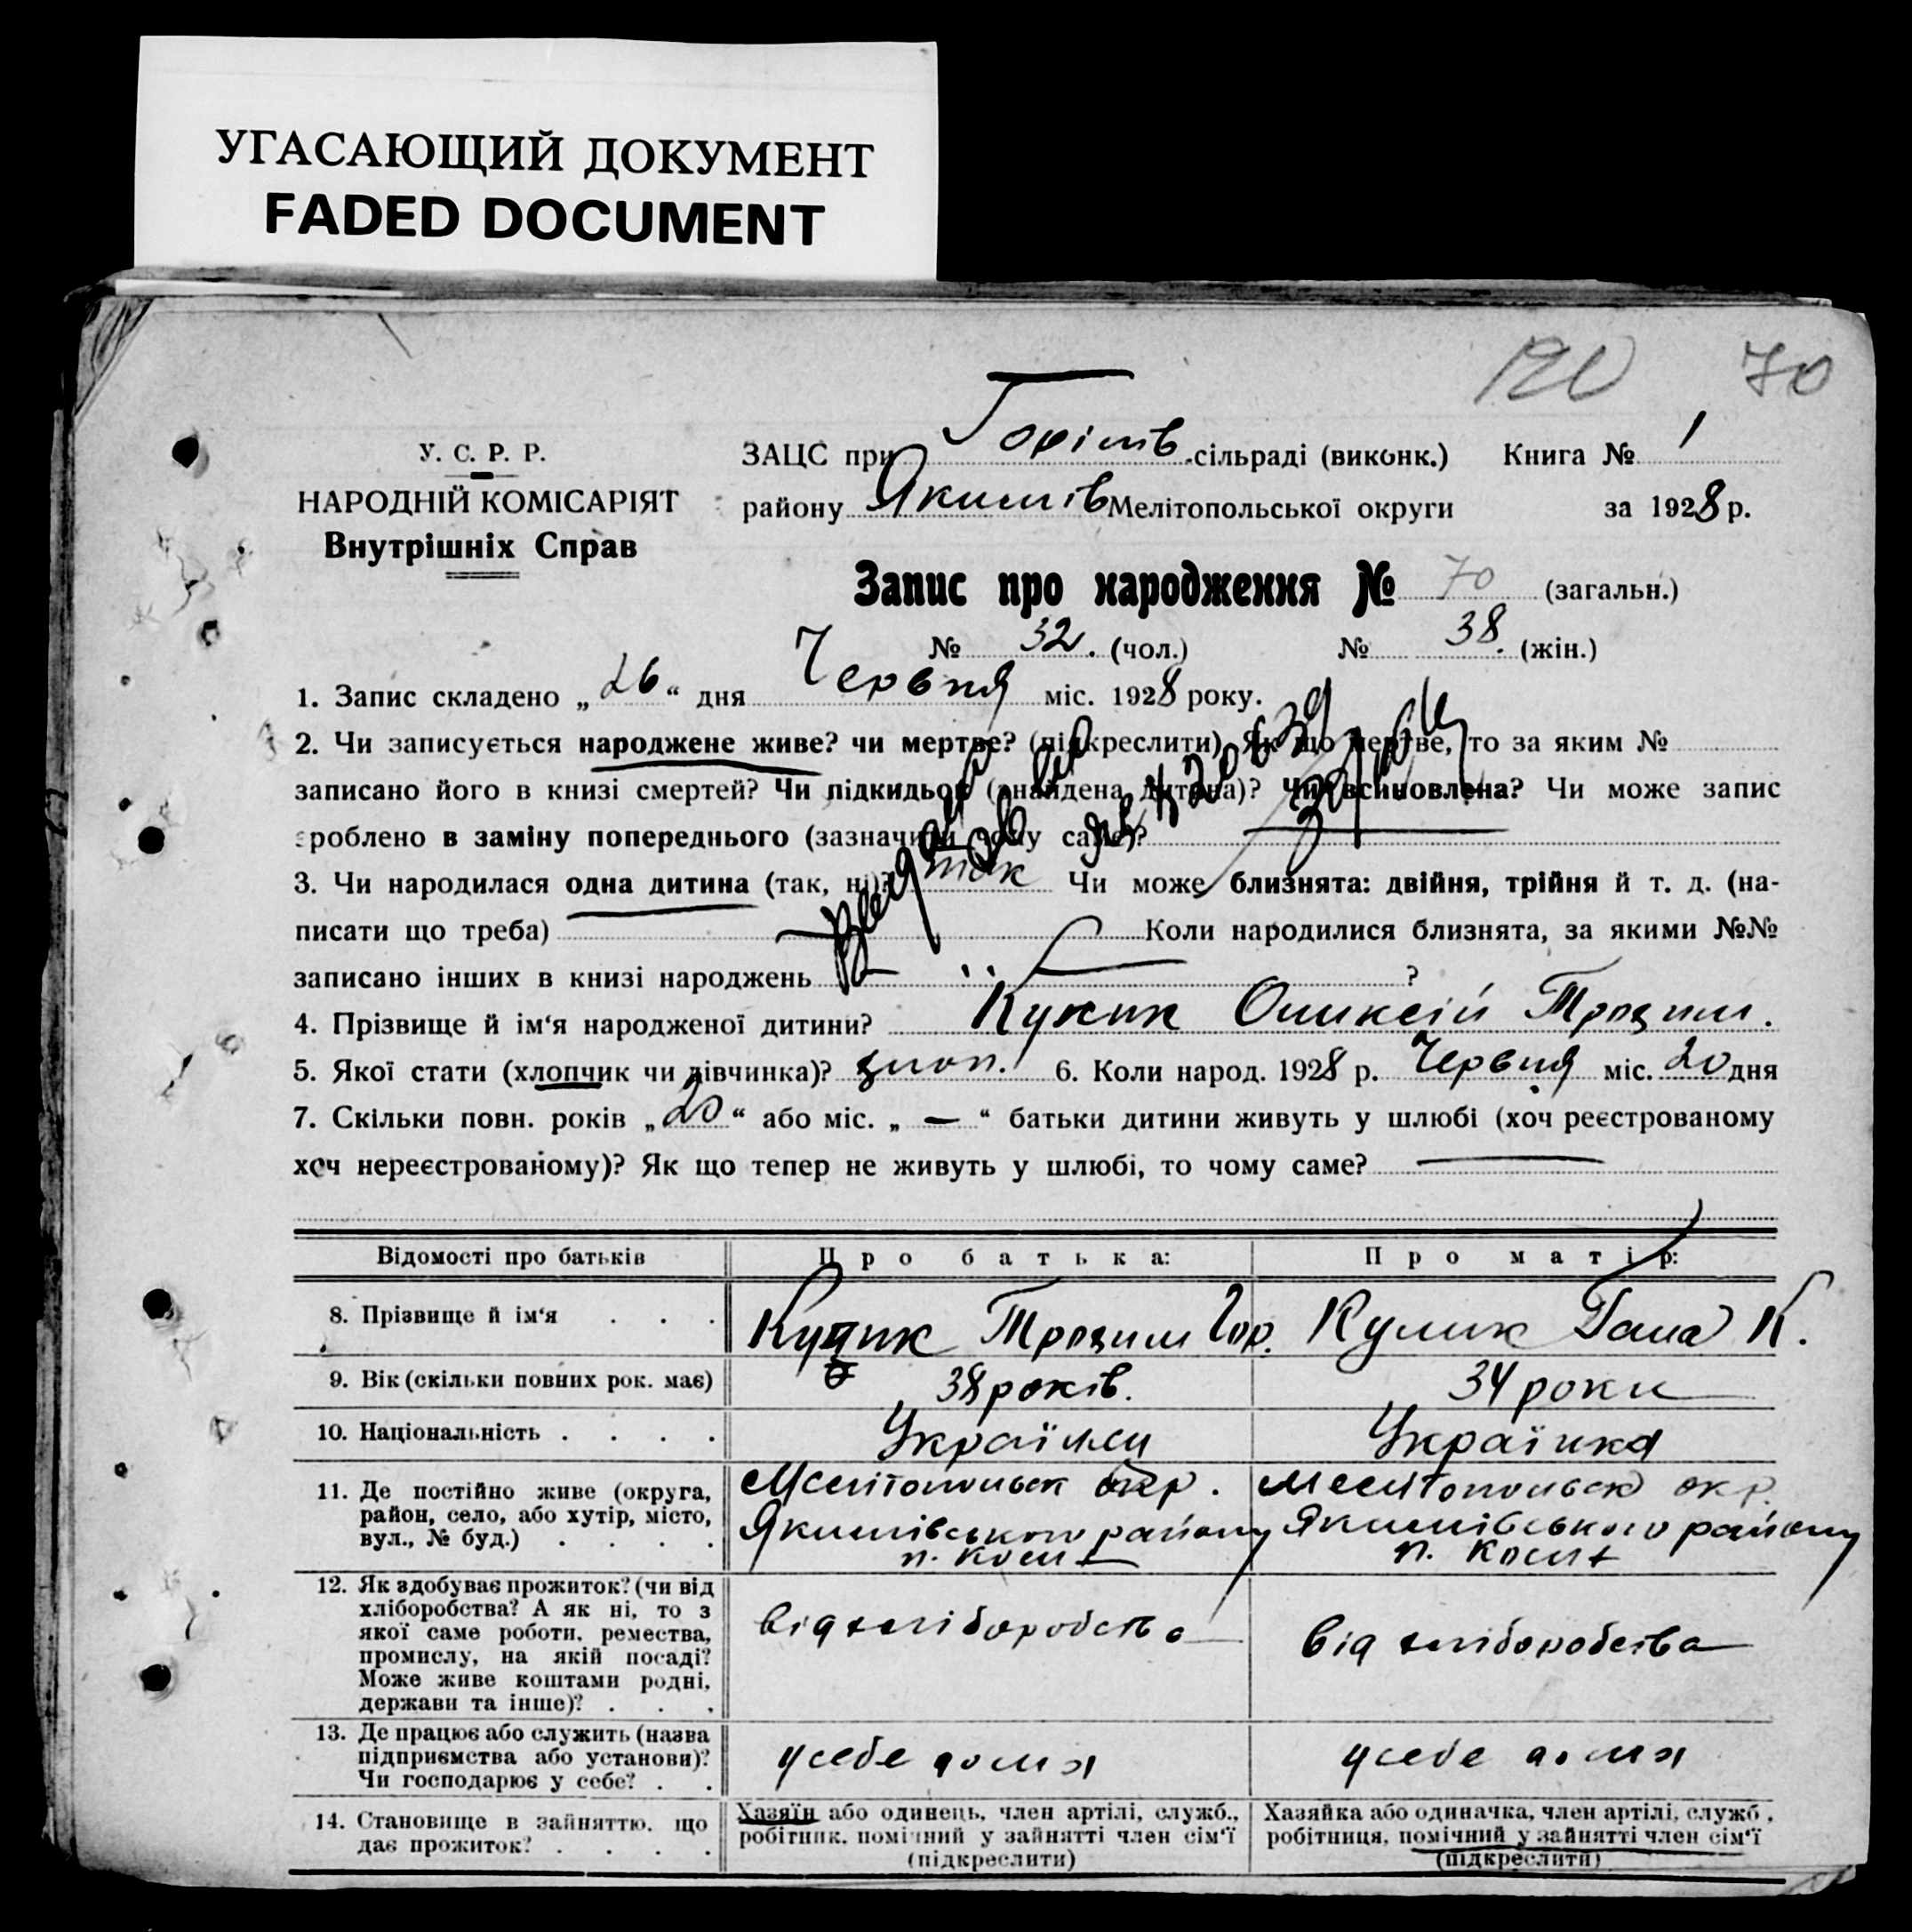 УГАСАЮЩИЙ ДОКУМЕНТ
FADED DOCUMENT
70
У. С. Р. Р.
НАРОДНІЙ КОМІСАРІЯТ
Внутрішніх Справ
ЗАЦС при сільраді (виконк.) Книга № 1
району Якимів Мелітопольської округи за 1928 р.
Запис про народження № 70 (загальн.)
№ 32. (чол.) № 38. (жін.)
1. Запис складено „26“ дня Червня міс. 1928 року.
2. Чи записується народжене живе? чи мертве? (підкреслити). Як що мертве, то за яким №
записано його в книзі смертей? Чи підкидьок (знайдена дитина)? Чи всиновлена? Чи може запис
зроблено в заміну попереднього (зазначити чому саме)?
3. Чи народилася одна дитина (так, ні)? так Чи може близнята: двійня, трійня й т. д. (на-
писати що треба) — Коли народилися близнята, за якими №№
записано інших в книзі народжень ?
4. Прізвище й ім‘я народженої дитини? Кулик Оликсій Трохим.
5. Якої стати (хлопчик чи дівчинка)? хлоп. 6. Коли народ. 1928 р. Червня міс. 20 дня
7. Скільки повн. років „20“ або міс. „ — “ батьки дитини живуть у шлюбі (хоч реєстрованому
хоч нереєстрованому)? Як що тепер не живуть у шлюбі, то чому саме? —
Відомості про батьків Про батька: Про матір:
8. Прізвище й ім‘я . . . Кулик Трохим Гор. Кулик Гана К.
9. Вік (скільки повних рок. має) 38 років. 34 роки
10. Національність . . . . Українець Українка
11. Де постійно живе (округа,
район, село, або хутір, місто,
вул., № буд.) . . . .
Мелітопольськ окр.
Якимівського району
Мелітопольськ окр.
Якимівського району
12. Як здобуває прожиток? (чи від
хліборобства? А як ні, то з
якої саме роботи, ремества,
промислу, на якій посаді?
Може живе коштами родні,
держави та інше)? . . .
від хліборобства
від хліборобства
13. Де працює або служить (назва
підприємства або установи)?
Чи господарює у себе? . .
у себе дома
у себе дома
14. Становище в зайняттю, що
дає прожиток? . . . .
Хазяїн або одинець, член артілі, служб.,
робітник, помічний у зайнятті член сім‘ї
(підкреслити)
Хазяйка або одиначка, член артілі, служб.,
робітниця, помічний у зайнятті член сім‘ї
(підкреслити)